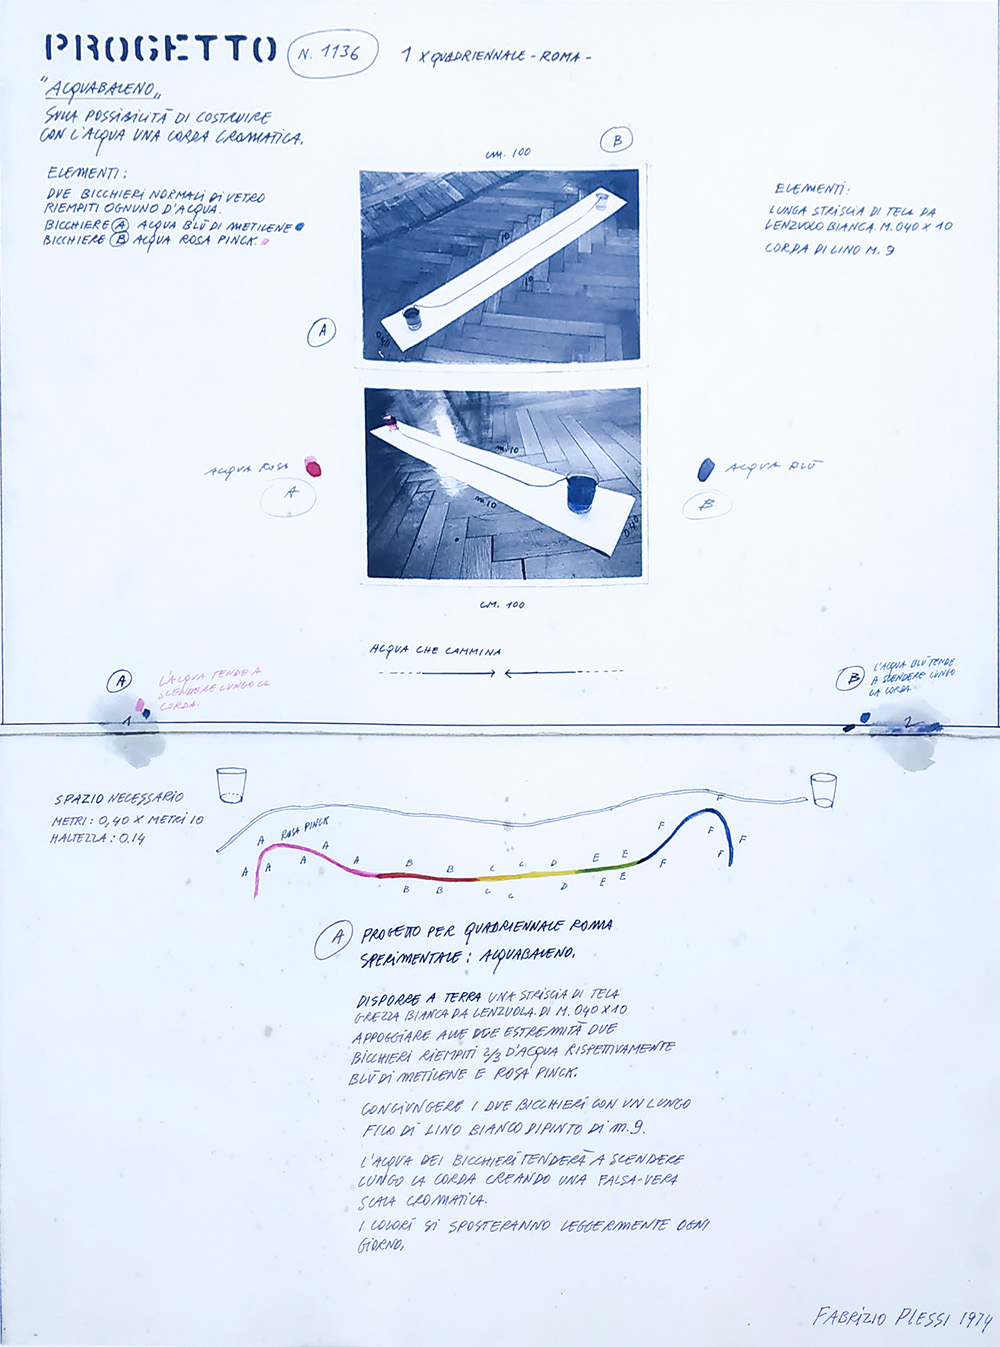 PROGETTO N. 1136 1 X QUADRIENNALE - ROMA -
"ACQUABALENO"
SULLA POSSIBILITÀ DI COSTRUIRE
CON L'ACQUA UNA CORDA CROMATICA.
ELEMENTI:
DUE BICCHIERI NORMALI DI VETRO
RIEMPITI OGNUNO D'ACQUA.
BICCHIERE A ACQUA BLÙ DI METILENE
BICCHIERE B ACQUA ROSA PINCK.
cm. 100
B
10
10
A
040
ELEMENTI:
LUNGA STRISCIA DI TELA DA
LENZUOLO BIANCA. M. 040 X 10
CORDA DI LINO M. 9
m. 10
m. 10
040
ACQUA ROSA
A
ACQUA BLÙ
B
CM. 100
ACQUA CHE CAMMINA
A
L'ACQUA TENDE A
SCENDERE LUNGO LA
CORDA.
1
B
L'ACQUA BLÙ TENDE
A SCENDERE LUNGO
LA CORDA.
2
SPAZIO NECESSARIO
METRI: 0,40 X METRI 10
HALTEZZA: 0.14
A ROSA PINCK F
A F F F
A A A A B B C C D E E F F
B B C C D E E
A PROGETTO PER QUADRIENNALE ROMA
SPERIMENTALE: ACQUABALENO.
DISPORRE A TERRA UNA STRISCIA DI TELA
GREZZA BIANCA DA LENZUOLA. DI M. 040 X 10
APPOGGIARE ALLE DUE ESTREMITÀ DUE
BICCHIERI RIEMPITI 2/3 D'ACQUA RISPETTIVAMENTE
BLÙ DI METILENE E ROSA PINCK.
CONGIUNGERE I DUE BICCHIERI CON UN LUNGO
FILO DI LINO BIANCO DIPINTO DI M. 9.
L'ACQUA DEI BICCHIERI TENDERÀ A SCENDERE
LUNGO LA CORDA CREANDO UNA FALSA-VERA
SCALA CROMATICA.
I COLORI SI SPOSTERANNO LEGGERMENTE OGNI
GIORNO.
FABRIZIO PLESSI 1974